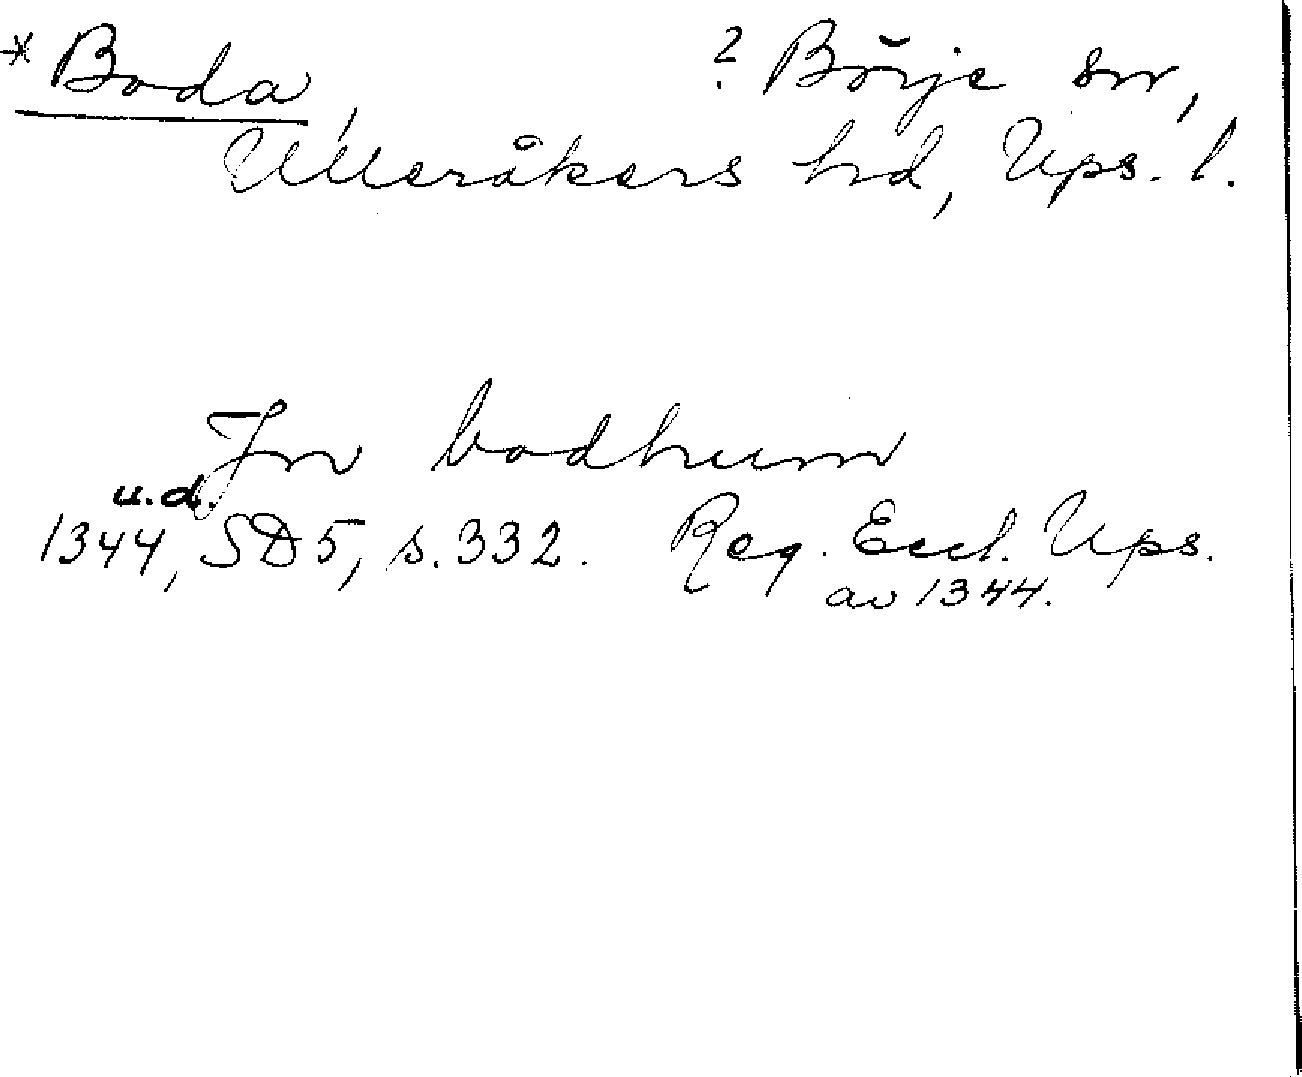 *Boda, ? Börje sn,
Ulleråkers hd, Ups. l.
In bodhum
u.d.
1344, SD 5, s. 332. Reg. Eccl. Ups.
av 1344.